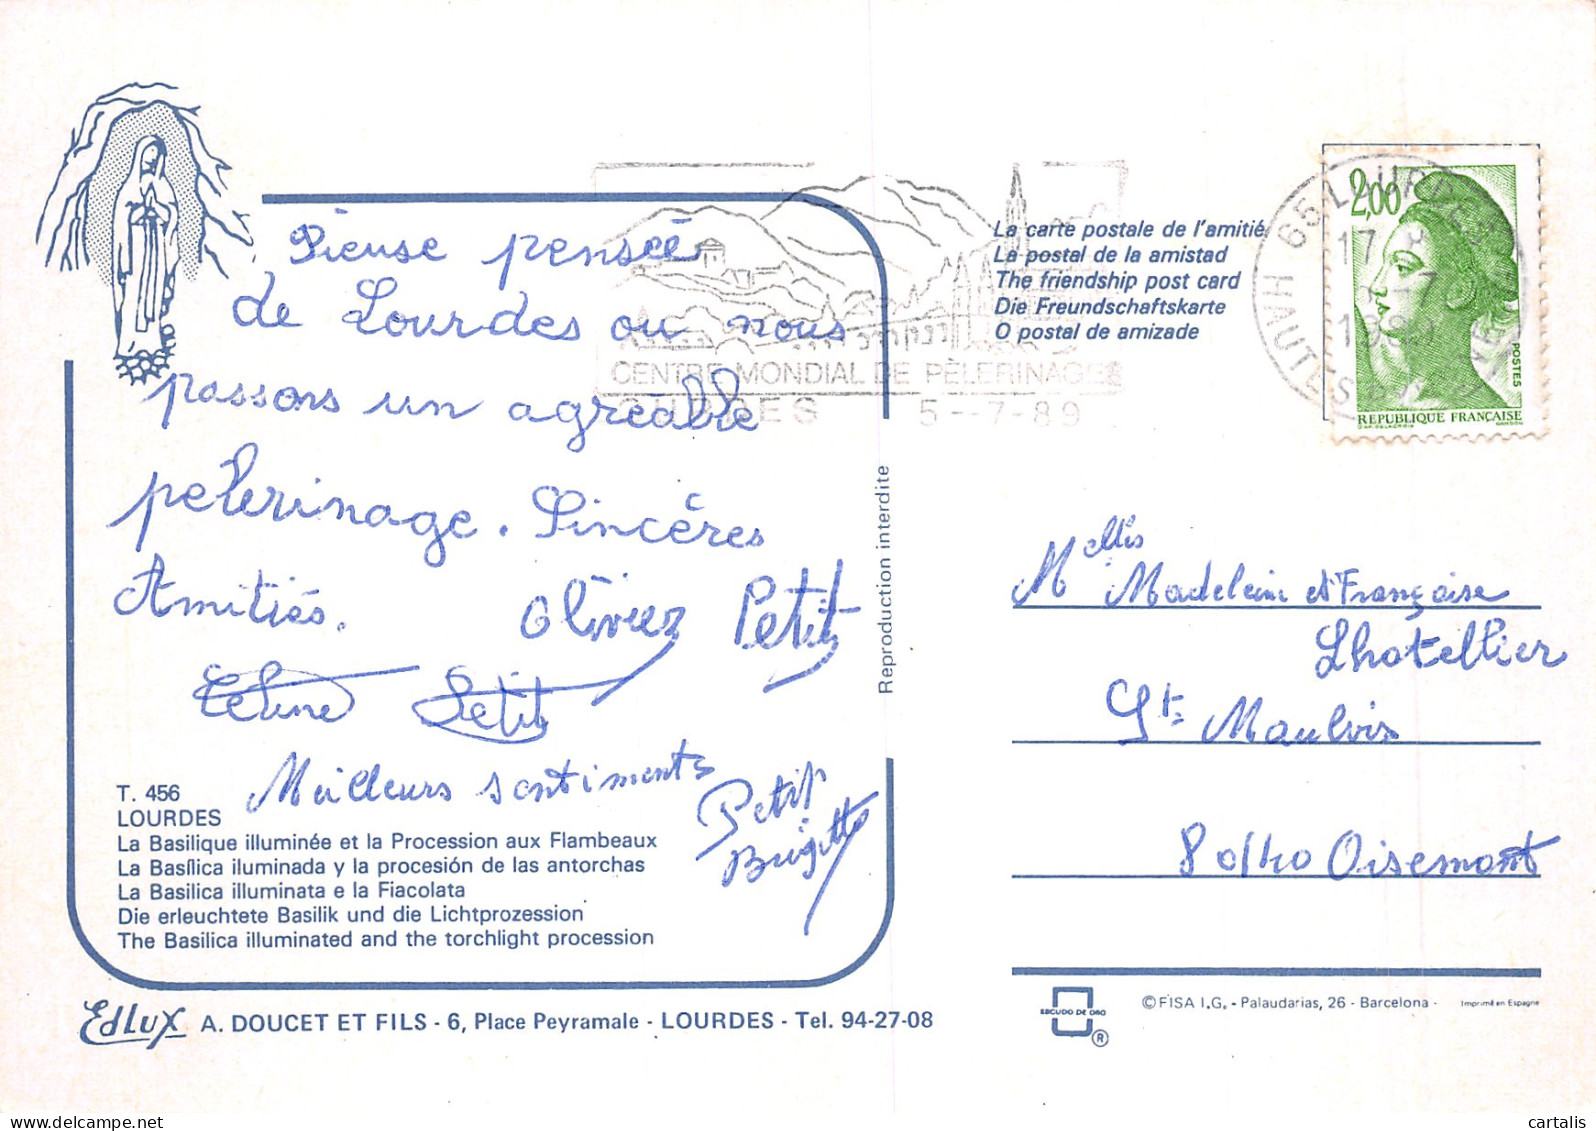 Pieuse pensée
de Lourdes ou nous
passons un agréable
pèlerinage. Sincères
Amitiés. Olivier Petit
Céline Petit
Meilleurs sentiments
Petit
Brigitte
T. 456
LOURDES
La Basilique illuminée et la Procession aux Flambeaux
La Basílica iluminada y la procesión de las antorchas
La Basilica illuminata e la Fiacolata
Die erleuchtete Basilik und die Lichtprozession
The Basilica illuminated and the torchlight procession
EdLux A. DOUCET ET FILS - 6, Place Peyramale - LOURDES - Tel. 94-27-08
Reproduction interdite
CENTRE MONDIAL DE PÈLERINAGES
5--7-89
La carte postale de l'amitié
La postal de la amistad
The friendship post card
Die Freundschaftskarte
O postal de amizade
65 LOURDES
17
HAUTES
2,00
POSTES
REPUBLIQUE FRANÇAISE
Melles Madelein et Françoise
Lhotellier
St Maulvis
80140 Oisemont
ESCUDO DE ORO
®
© FISA I.G. - Palaudarias, 26 - Barcelona - Imprimé en Espagne
cartalis